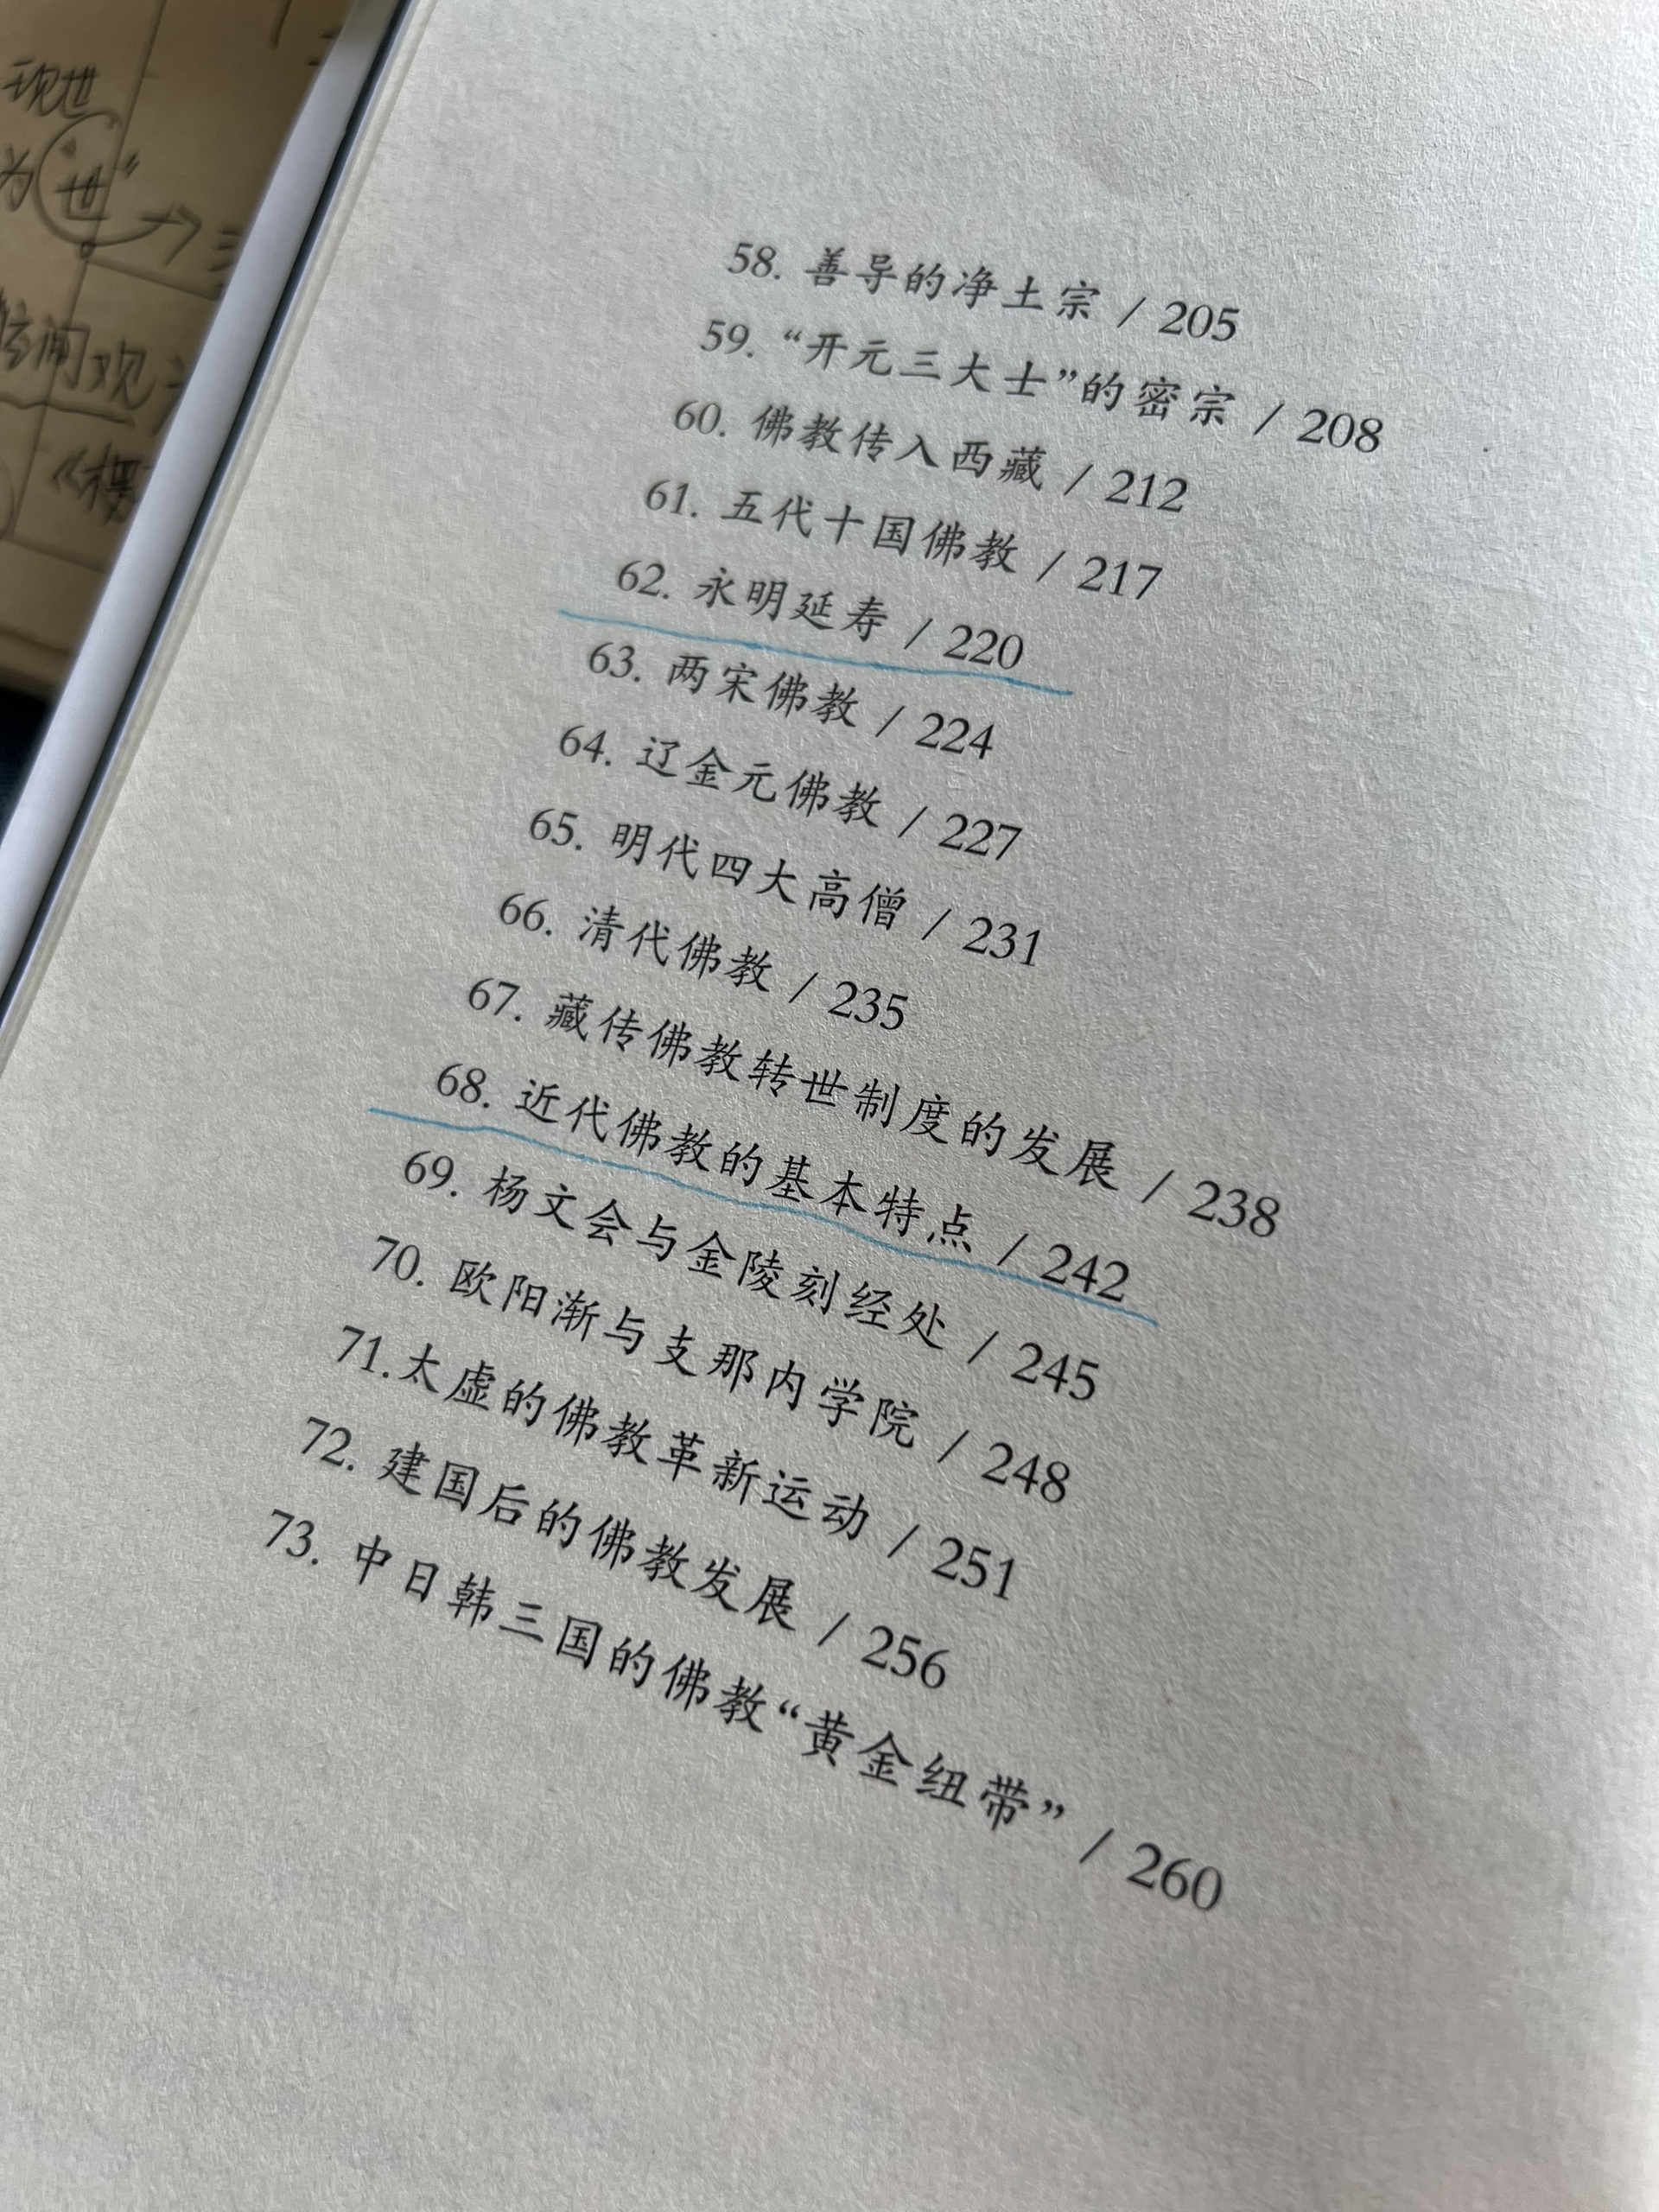 现世
为"世"
观
《楞
58. 善导的净土宗 / 205
59. “开元三大士”的密宗 / 208
60. 佛教传入西藏 / 212
61. 五代十国佛教 / 217
62. 永明延寿 / 220
63. 两宋佛教 / 224
64. 辽金元佛教 / 227
65. 明代四大高僧 / 231
66. 清代佛教 / 235
67. 藏传佛教转世制度的发展 / 238
68. 近代佛教的基本特点 / 242
69. 杨文会与金陵刻经处 / 245
70. 欧阳渐与支那内学院 / 248
71.太虚的佛教革新运动 / 251
72. 建国后的佛教发展 / 256
73. 中日韩三国的佛教“黄金纽带” / 260